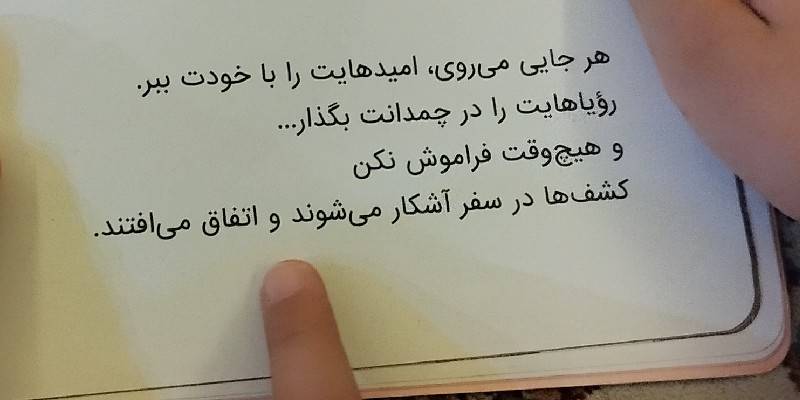 هر جایی می‌روی، امیدهایت را با خودت ببر.
رؤیاهایت را در چمدانت بگذار...
و هیچ‌وقت فراموش نکن
کشف‌ها در سفر آشکار می‌شوند و اتفاق می‌افتند.